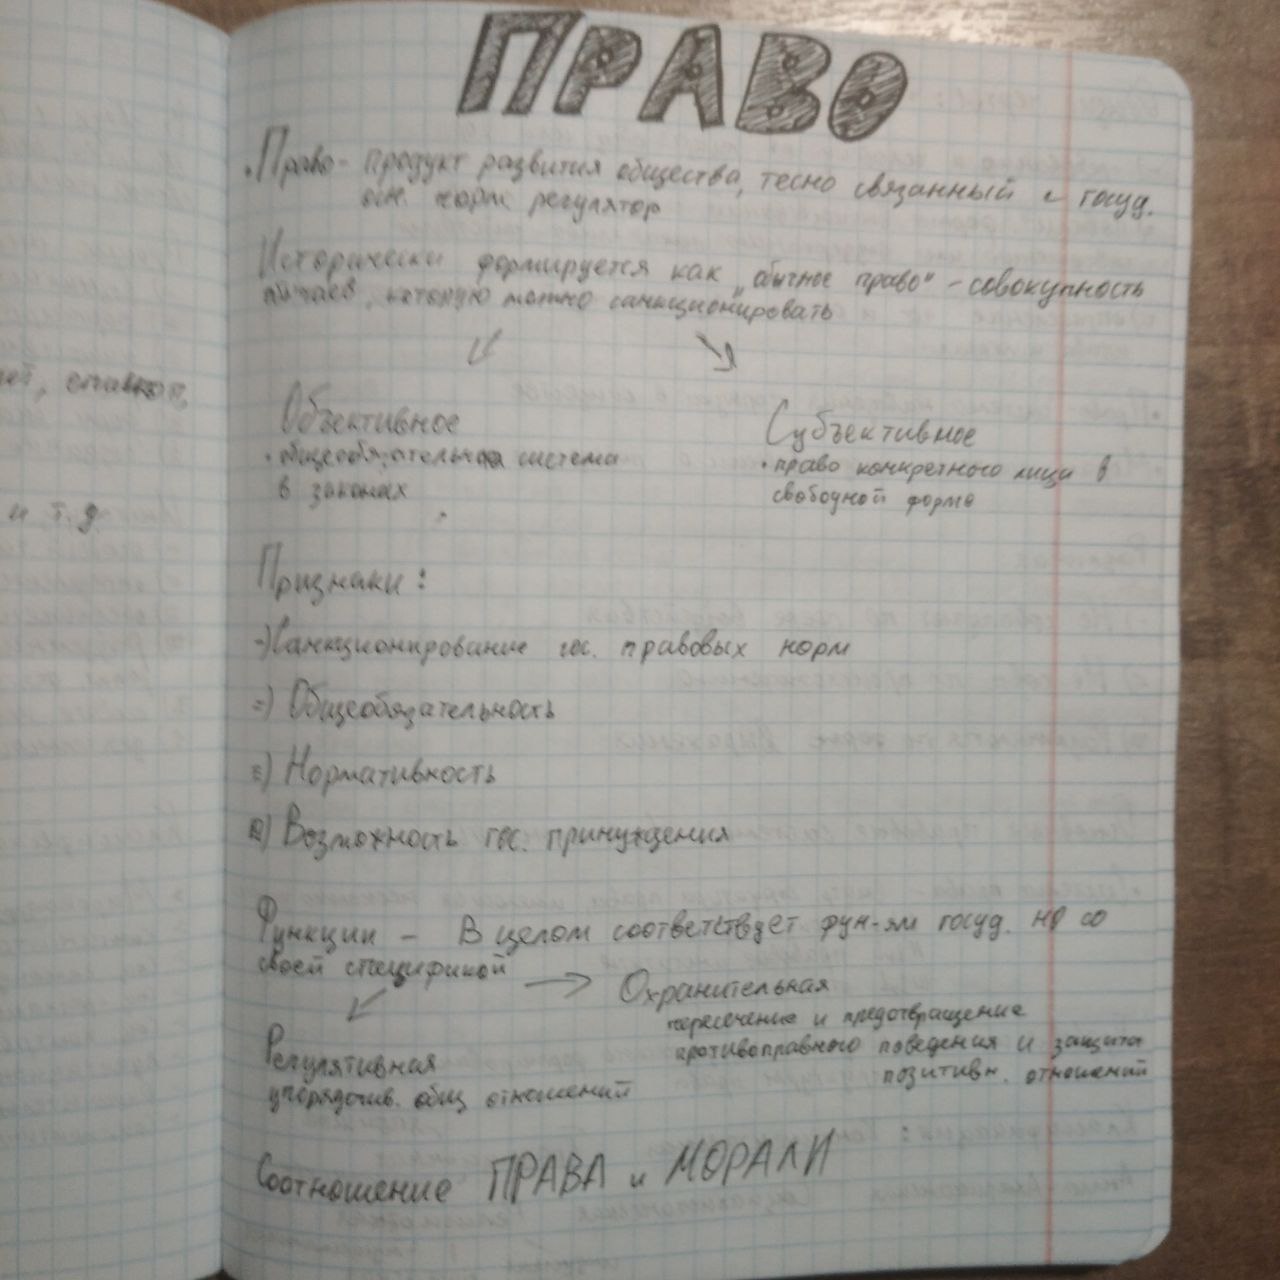 ПРАВО
• Право - продукт развития общества, тесно связанный с госуд.
осн. норм регулятор
Исторически формируется как „обычное право" - совокупность
которую можно санкционировать
Объективное
• общеобязательная система
в законах
Субъективное
• право конкретного лица в
свободной форме
Признаки:
-) Санкционирование гос. правовых норм
=) Общеобязательность
≡) Нормативность
Возможность гос. принуждения
Функции - В целом соответствует фун-ям госуд. но со
своей спецификой
Охранительная
пересечение и предотвращение
противоправного поведения и защита
позитивн. отношений
Регулятивная
упорядочив. общ отношений
Соотношение ПРАВА и МОРАЛИ
и т.д.